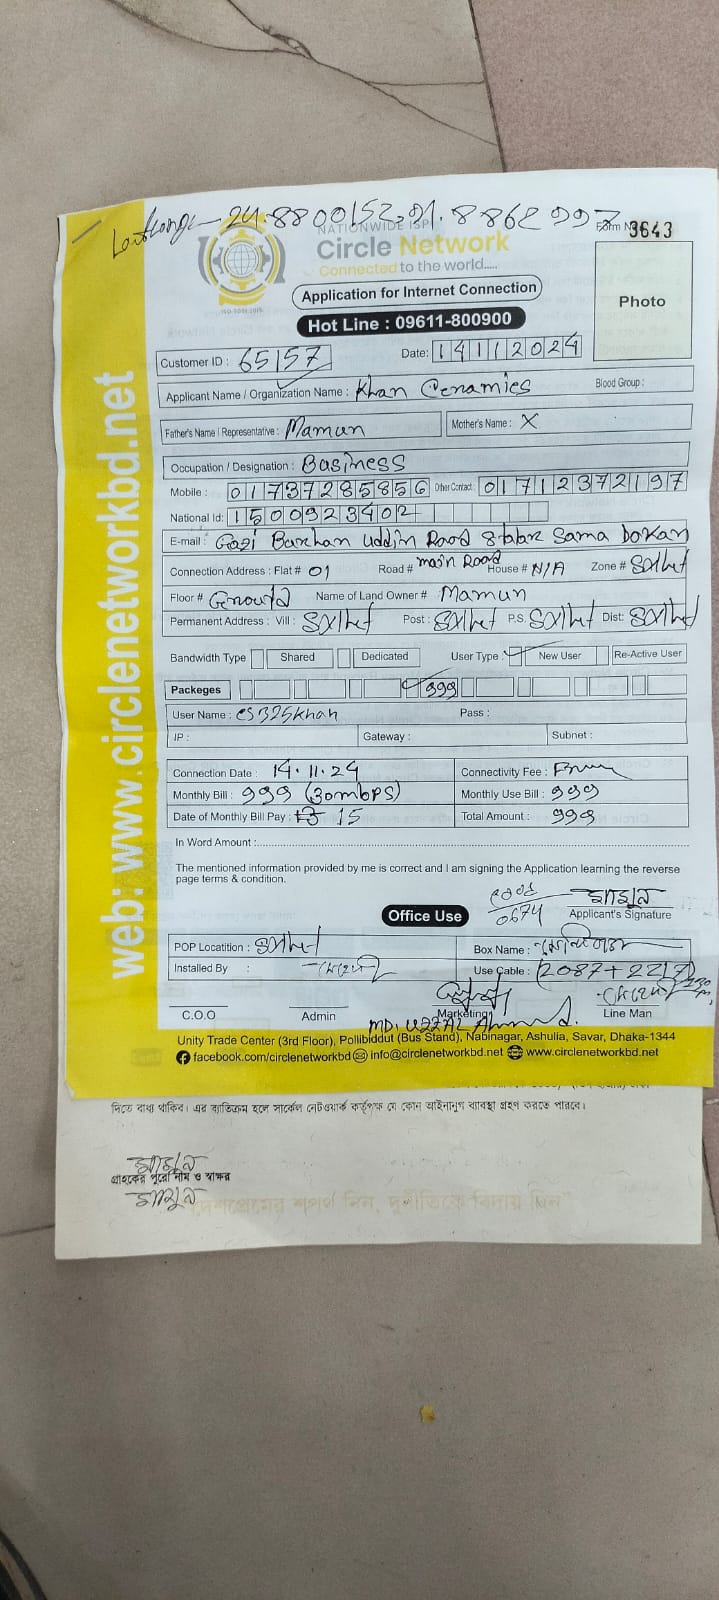 24.8800152,91.8862997
Form No 3643
NATIONWIDE ISP
Circle Network
Connected to the world.....
Application for Internet Connection
Photo
Hot Line : 09611-800900
Customer ID : 65157 Date: 14112024
Applicant Name / Organization Name : Khan Ceramics Blood Group :
Father's Name / Representative : Mamun Mother's Name : X
Occupation / Designation : Business
Mobile : 01737285856 Other Contact : 01712372197
National Id: 1500923402
E-mail : Gazi Burhan Uddin Road Sama Dokan
Connection Address : Flat # 01 Road # main Road House # N/A Zone # Sylhet
Floor # Name of Land Owner # Mamun
Permanent Address : Vill : Sylhet Post : Sylhet P.S. Sylhet Dist: Sylhet
Bandwidth Type Shared Dedicated User Type : New User Re-Active User
Packeges 999
User Name : cs325khan Pass :
IP : Gateway : Subnet :
Connection Date : 14.11.24 Connectivity Fee :
Monthly Bill : 999 (30mbps) Monthly Use Bill : 999
Date of Monthly Bill Pay : 15 Total Amount : 999
In Word Amount :
The mentioned information provided by me is correct and I am signing the Application learning the reverse
page terms & condition.
মামুন
0674
Office Use Applicant's Signature
POP Locatition : Sylhet Box Name :
Installed By : Use Cable : (2087+2217)
C.O.O Admin Marketing Line Man
MD. UZZAL Ahmed.
Unity Trade Center (3rd Floor), Pollibiddut (Bus Stand), Nabinagar, Ashulia, Savar, Dhaka-1344
facebook.com/circlenetworkbd info@circlenetworkbd.net www.circlenetworkbd.net
web: www.circlenetworkbd.net
দিতে বাধ্য থাকিব। এর ব্যতিক্রম হলে সার্কেল নেটওয়ার্ক কর্তৃপক্ষ যে কোন আইনানুগ ব্যবস্থা গ্রহণ করতে পারবে।
মামুন
গ্রাহকের পুরো নাম ও স্বাক্ষর
মামুন
"দেশপ্রেমের শপথ নিন, দুর্নীতিকে বিদায় দিন"